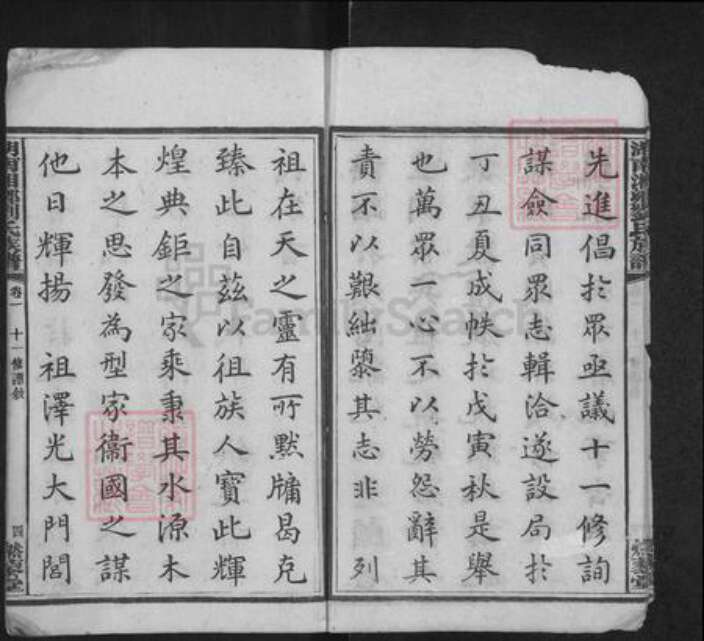 先進倡於眾亟議十一修詢
謀僉同眾志輯洽遂設局於
丁丑夏成帙於戊寅秋是舉
也萬眾一心不以勞怨辭其
責不以艱絀隳其志非 列
祖在天之靈有所默牖曷克
臻此自茲以徂族人寶此輝
煌典鉅之家乘秉其水源木
本之思發為型家衞國之謀
他日輝揚 祖澤光大門閭
卷一 十一修譜敘
四
FamilySearch